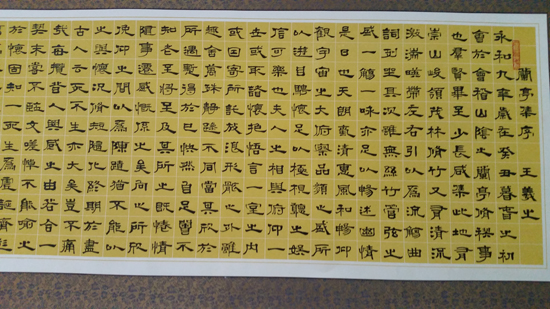 蘭亭集序 王羲之
永和九年歲在癸丑暮春之初
會於會稽山陰之蘭亭脩禊事
也群賢畢至少長咸集此地有
崇山峻領茂林脩竹又有清流
激湍暎帶左右引以爲流觴曲
水列坐其次雖無絲竹管弦之
盛一觴一詠亦足以暢敘幽情
是日也天朗氣清惠風和暢仰
觀宇宙之大俯察品類之盛所
以遊目騁懷足以極視聽之娛
信可樂也夫人之相與俯仰一
世或取諸懷抱悟言一室之內
或因寄所託放浪形骸之外雖
趣舍萬殊靜躁不同當其欣於
所遇暫得於己快然自足曾不
知老之將至及其所之既惓情
隨事遷感慨係之矣向之所欣
俛仰之間以爲陳迹猶不能以
之興懷況脩短隨化終期於盡
古人云死生亦大矣豈不痛
哉每攬昔人興感之由若合一
契未嘗不臨文嗟悼不能喻之
於懷固知一死生爲虛誕齊彭